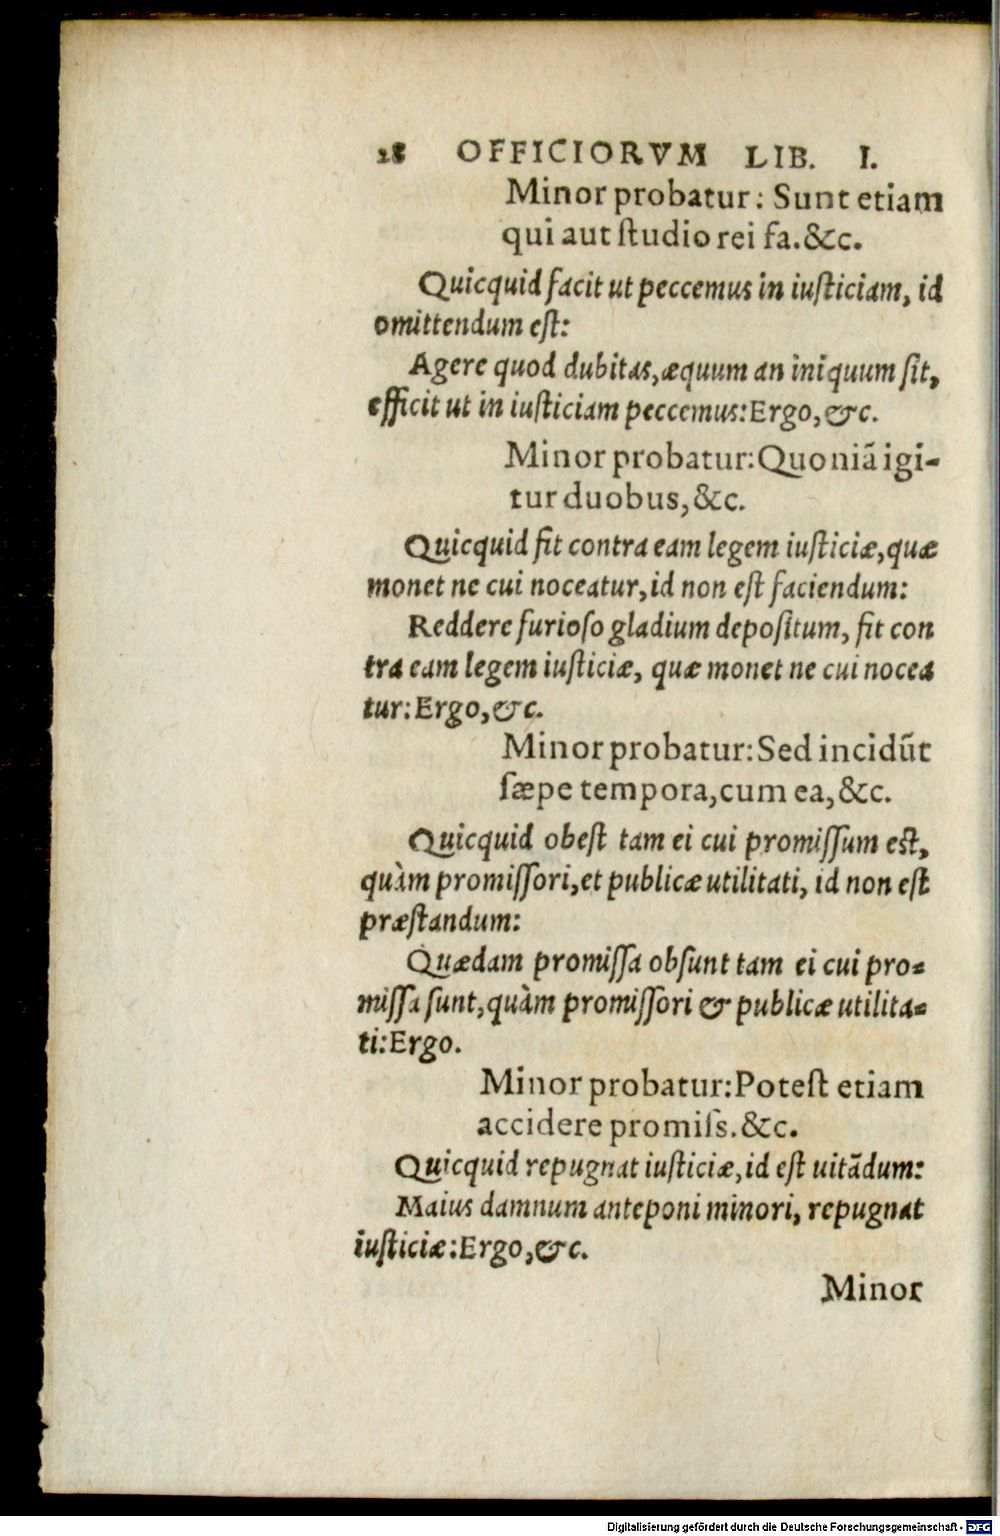 28 OFFICIORVM LIB. I.
Minor probatur: Sunt etiam
qui aut ſtudio rei fa.&c.
Quicquid facit ut peccemus in iuſticiam, id
omittendum eſt:
Agere quod dubitas, æquum an iniquum ſit,
efficit ut in iuſticiam peccemus: Ergo, &c.
Minor probatur: Quoniā igi-
tur duobus, &c.
Quicquid fit contra eam legem iuſticiæ, quæ
monet ne cui noceatur, id non eſt faciendum:
Reddere furioſo gladium depoſitum, fit con
tra eam legem iuſticiæ, quæ monet ne cui nocea
tur: Ergo, &c.
Minor probatur: Sed incidūt
ſæpe tempora, cum ea, &c.
Quicquid obeſt tam ei cui promiſſum eſt,
quàm promiſſori, et publicæ utilitati, id non eſt
præſtandum:
Quædam promiſſa obſunt tam ei cui pro-
miſſa ſunt, quàm promiſſori & publicæ utilita-
ti: Ergo.
Minor probatur: Poteſt etiam
accidere promiſs. &c.
Quicquid repugnat iuſticiæ, id eſt uitādum:
Maius damnum anteponi minori, repugnat
iuſticiæ: Ergo, &c.
Minor
Digitalisierung gefördert durch die Deutsche Forschungsgemeinschaft - DFG